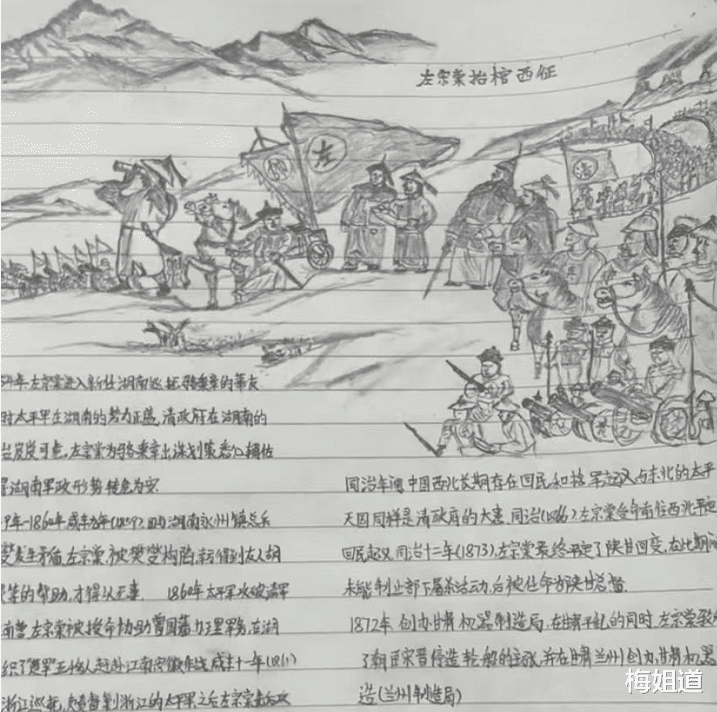 左宗棠抬棺西征
左
年左宗棠进入新任湖南巡抚骆秉章的幕友
时太平军在湖南的势力正盛,清政府在湖南的
岌岌可危,左宗棠为骆秉章出谋划策悉心辅佐
湖南军政形势转危为安
年-1860年,咸丰九年(1859),因与湖南永州镇总兵
樊发生矛盾,左宗棠被樊燮构陷,幸得到友人胡
等的帮助,才得以无事 1860年太平军攻破清军
南营左宗棠被授命协助曾国藩办理军务,在湖
织了"楚军"五千余人赶赴江南安徽作战咸丰十一年(1861)
浙江巡抚,负责督剿浙江的太平军之后左宗棠
同治年间,中国西北长期存在回民和捻军起义与东北的太平
天国同样是清政府的大患,同治(1866)左宗棠受命前往西北平定
回民起义,同治十二年(1873),左宗棠最终平定了陕甘回变,在此期间
未能制止部下屠杀活动,后被任命为陕甘总督
1872年,创办甘肃机器制造局,在甘肃平乱的同时,左宗棠
了朝臣宋晋停造轮船的主张,并在甘肃兰州创办,甘肃机器
造(兰州制造局)
梅姐道